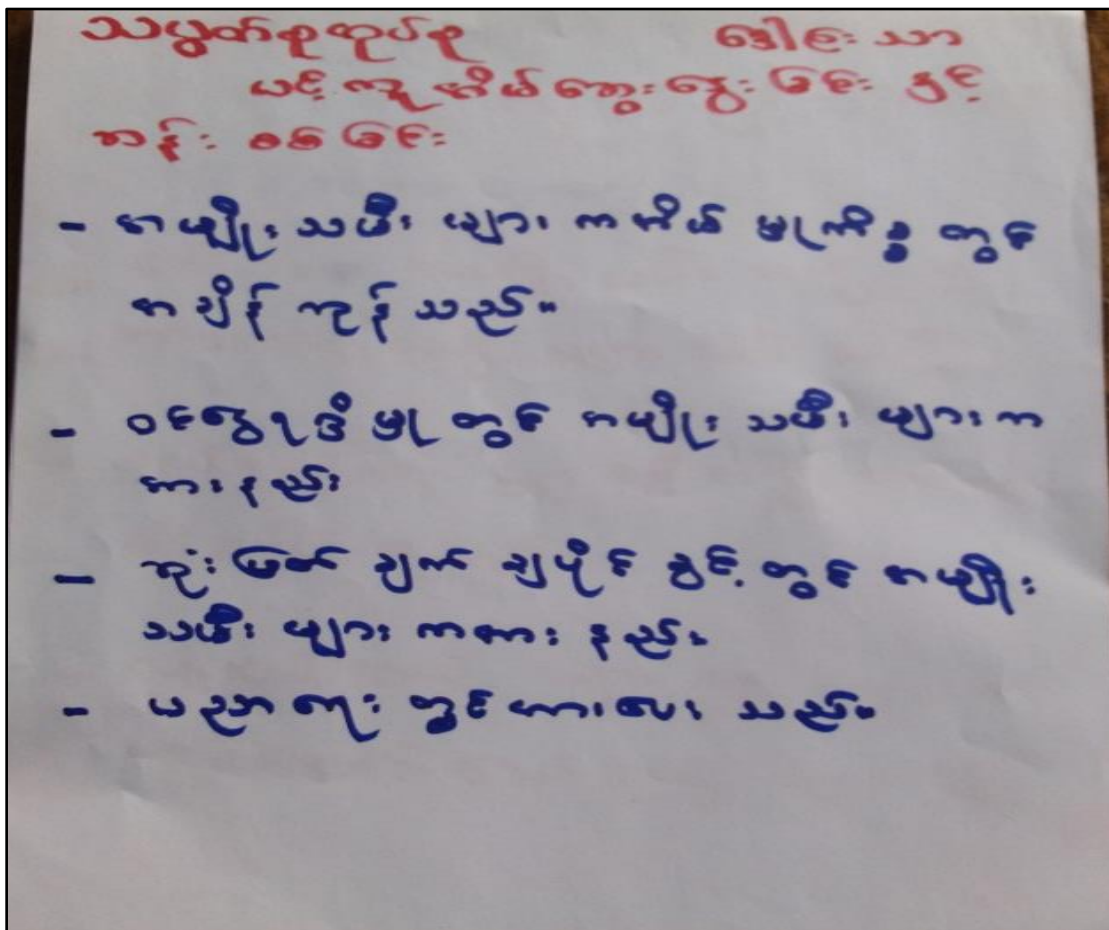 သပွတ်စုထုပ်စု ခေါင်းသာ
ယင့်ကူ အိမ်ဆွေးနွေးခြင်း နှင့်
ဆန်းစစ်ခြင်း
- အမျိုးသမီးများက အိမ်မှုကိစ္စတွင်
အချိန်ကုန်သည်။
- ဝင်ငွေရှိမှုတွင် အမျိုးသမီးများက
အားနည်း
- ဆုံးဖြတ်ချက်ချပိုင်ခွင့်တွင် အမျိုး
သမီးများကအားနည်း
- ပညာရေးတွင်အားပေးသည်။